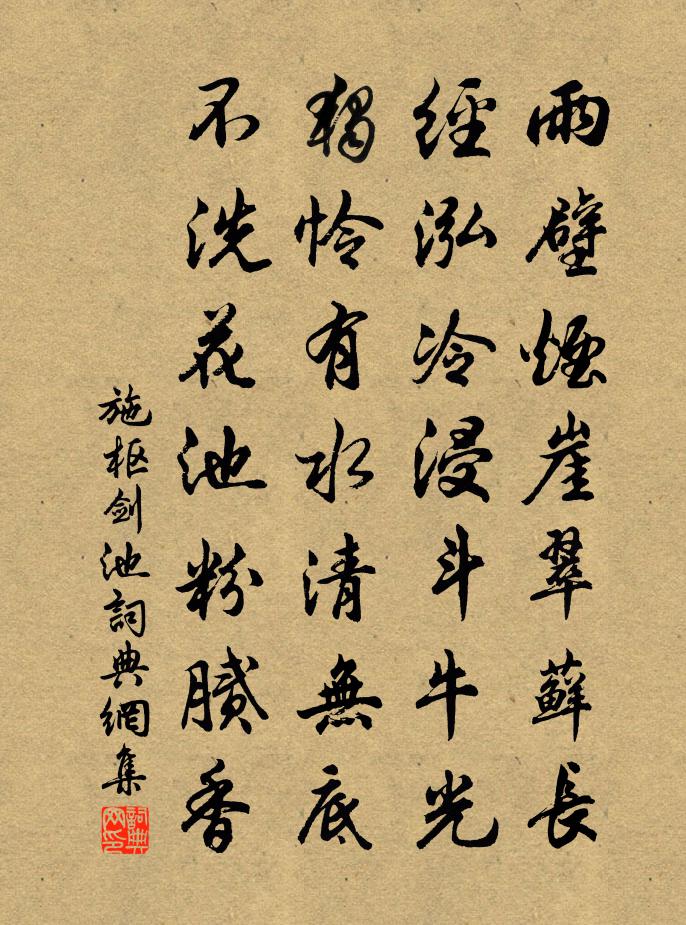 雨壁煙崖翠蘚長
經泓冷浸斗牛光
獨怜有水清無底
不洗花池粉膩香
施枢劍池詞典網集
詞典網印